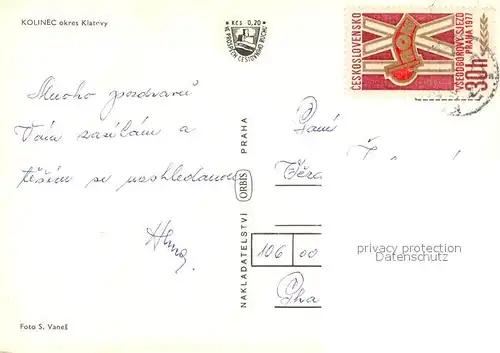 KOLINEC okres Klatovy
Kčs 0,20
VE PROSPĚCH CESTOVNÍHO RUCHU
ČESKOSLOVENSKO
VŠEODBOROVÝ SJEZD
PRAHA 1977
30h
Mnoho pozdravů
Vám zasílám a
těším se nashledanou
NAKLADATELSTVÍ ORBIS PRAHA
Paní
Věra
106 00
Pha
privacy protection
Datenschutz
Foto S. Vaneš